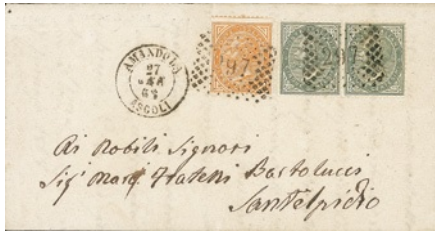 AMANDOLA
27
69
ASCOLI
197
Ai Nobili Signori
Sigi Fratelli Bartolucci
Santelpidio